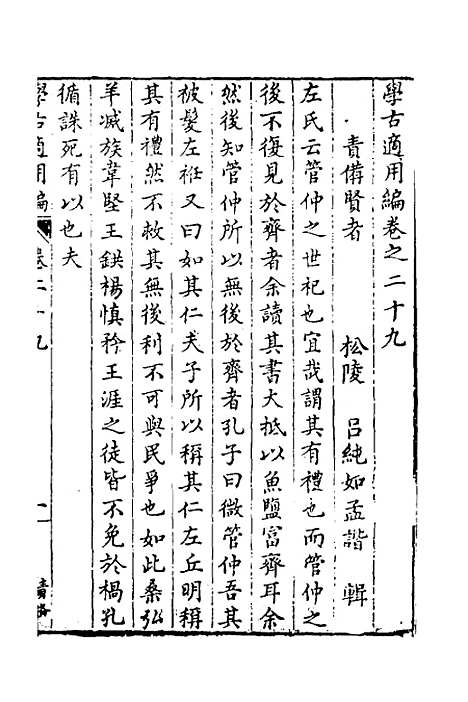 學古適用編卷之二十九
責備賢者 松陵 呂純如孟諧 輯
左氏云管仲之世祀也宜哉謂其有禮也而管仲之
後不復見於齊者余讀其書大抵以魚鹽富齊耳余
然後知管仲所以無後於齊者孔子曰微管仲吾其
被髮左袵又曰如其仁夫子所以稱其仁左丘明稱
其有禮然不救其無後利不可與民爭也如此桑弘
羊滅族韋堅王鉷楊慎矜王涯之徒皆不免於禍孔
循誅死有以也夫
學古適用編 卷二十九 一